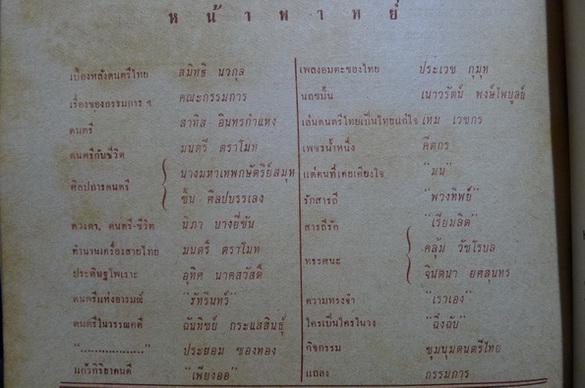 หน้าพาทย์
เบื้องหลังดนตรีไทย สมิทธิ นวกุล
เรื่องของกรรมการ ฯ คณะกรรมการ
ดนตรี สาทิส อินทรกำแหง
ดนตรีกับชีวิต มนตรี ตราโมท
ศิลปการดนตรี นางมหาเทพกษัตริย์สมุห
ชิ้น ศิลปบรรเลง
ดวงดาว, ดนตรี-ชีวิต นิภา บางยี่ขัน
ตำนานเครื่องสายไทย มนตรี ตราโมท
ประดิษฐไพเราะ อุทิศ นาคสวัสดิ์
ดนตรีแห่งอารมณ์ "รัทรินทร์"
ดนตรีในวรรณคดี ฉันทิชย์ กระแสสินธุ์
"...................." ประยอม ซองทอง
แก้วกิริยาคนดี "เพียงออ"
เพลงอมตะของไทย ประเวช กุมุท
นกขมิ้น เนาวรัตน์ พงษ์ไพบูลย์
เล่นดนตรีไทยเป็นไทยแก่ใจ เหม เวชกร
เพชรน้ำหนึ่ง คีตกร
แด่คนที่เคยเคียงใจ "มน"
รักสารถี "พวงทิพย์"
สารถีรัก "เรียมลิต"
ทรรศนะ คลุ้ม วัชโรบล
จินตนา ยศสุนทร
ความทรงจำ "เราเอง"
ใครเป็นใครในวง "ฉิ่งฉับ"
กิจกรรม ชุมนุมดนตรีไทย
แถลง กรรมการ